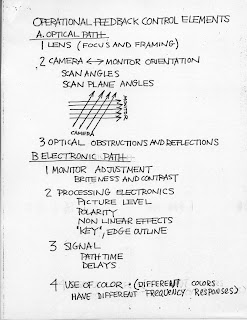 OPERATIONAL FEEDBACK CONTROL ELEMENTS
A. OPTICAL PATH
1 LENS (FOCUS AND FRAMING)
2 CAMERA <--> MONITOR ORIENTATION
SCAN ANGLES
SCAN PLANE ANGLES
MONITOR
CAMERA
3 OPTICAL OBSTRUCTIONS AND DEFLECTIONS
B ELECTRONIC PATH
1 MONITOR ADJUSTMENT
BRITENESS AND CONTRAST
2 PROCESSING ELECTRONICS
PICTURE LEVEL
POLARITY
NON LINEAR EFFECTS
"KEY", EDGE OUTLINE
3 SIGNAL
PATH TIME
DELAYS
4 USE OF COLOR • (DIFFERENT COLORS
HAVE DIFFERENT FREQUENCY RESPONSES)